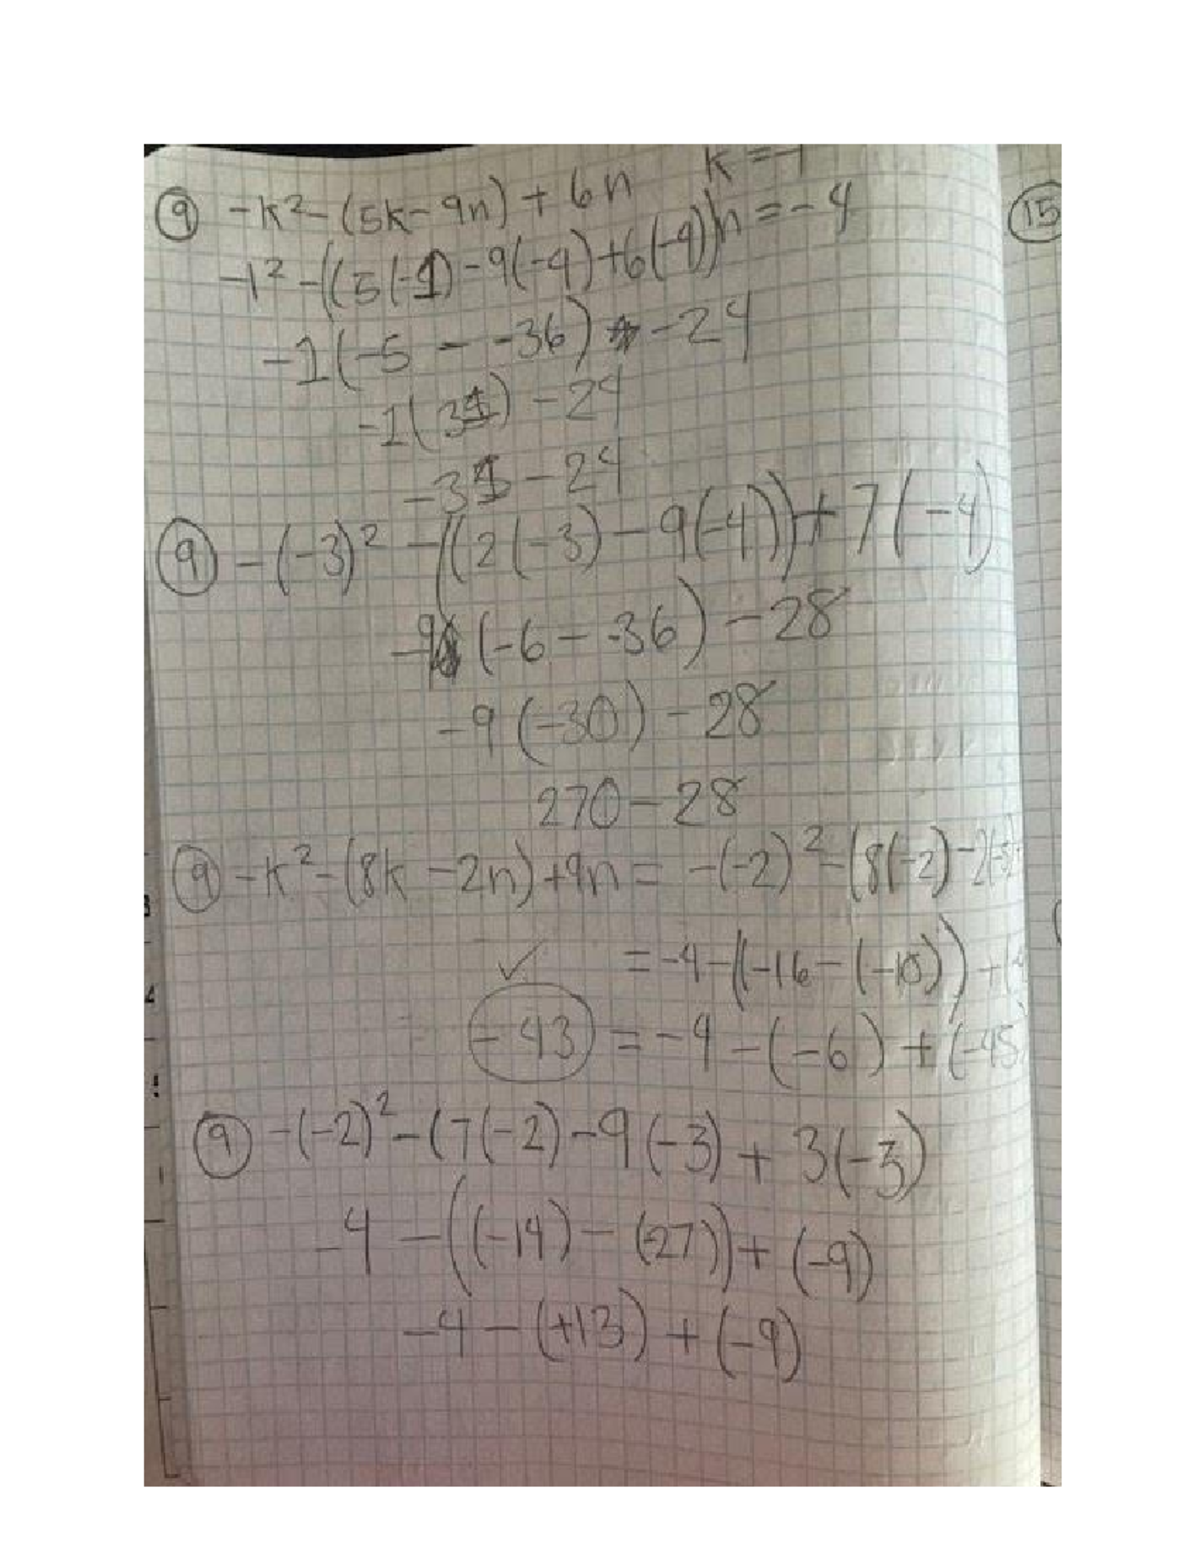 ⑨ -k² - (5k - 9n) + 6n k = -1
-1² - ((5(-1) - 9(-4) + 6(-4)) n = -4
-1(-5 - -36) + -24
-1(31) - 24
-31 - 24
⑨ -(-3)² - ((2(-3) - 9(-4)) + 7(-4)
-9(-6 - -36) - 28
-9(-30) - 28
270 - 28
⑨ -k² - (8k - 2n) + 9n = -(-2)² - (8(-2) - 2(-5)
✓ = -4 - (-16 - (-10)) + (-4
-43 = -4 - (-6) + (-45)
⑨ -(-2)² - (7(-2) - 9(-3) + 3(-3)
-4 - ((-14) - (-27)) + (-9)
-4 - (+13) + (-9)
⑮